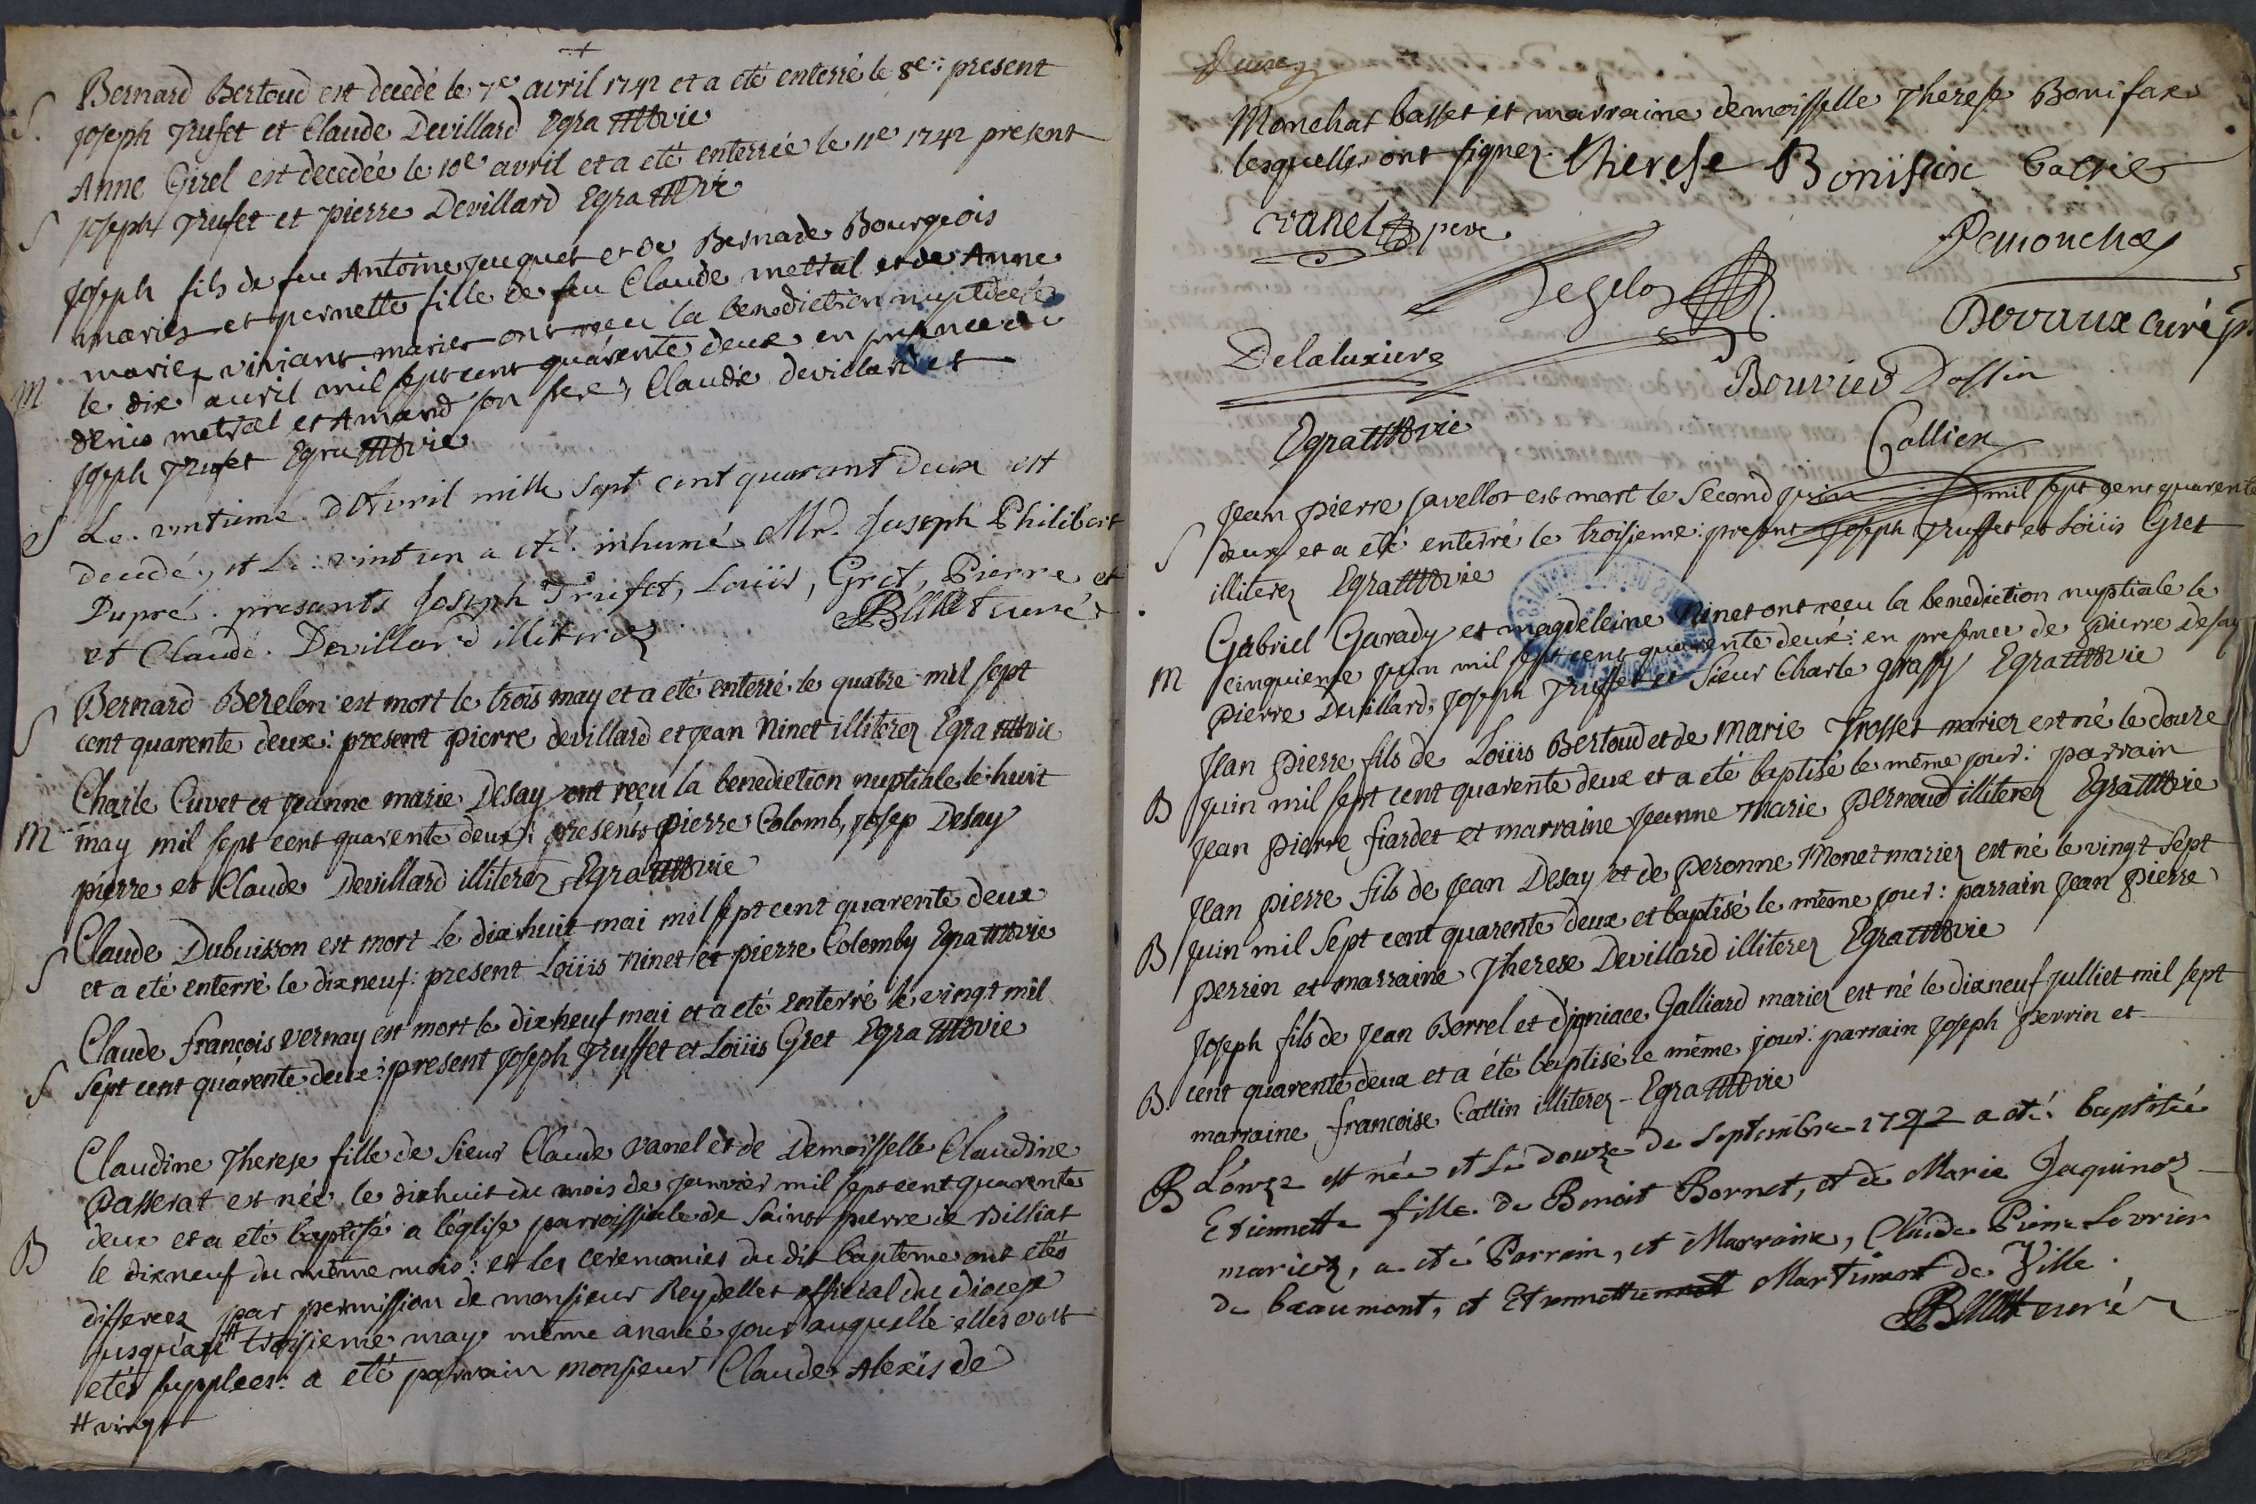 S. Bernard Bertoud est decedé le 7e avril 1742 et a eté enterré le 8e: present
joseph Trufet et Claude Devillard Egra vie
Anne Girel est decedée le 10e avril et a eté enterrée le 11e 1742 present
S joseph Trufet et pierre Devillard Egra
joseph fils de feu Antoine juquet et de Bernade Bourgeois
mariez et pernette fille de feu Claude metral et de Anne
mariez vivians mariez ont reçu la benediction nuptiale
M le dix avril mil sept cent quarente deux en presence de
denis metral et Amand son frere, Claude devillard et
joseph Trufet Egra vie
S Le vintieme d'Avril mille sept cent quarant deux est
decedé, et Le vint un a eté inhumé Mr. Joseph Philibert
Dupré. presants Joseph Trufet, Loüis, Gret, Pierre et
et Claude Devillard illiterez curé
Bernard Berelon est mort le trois may et a eté enterré le quatre mil sept
S cent quarente deux: present pierre devillard et jean Ninet illiterez Egra vie
Charle Cuvet et jeanne marie Desay ont reçu la benediction nuptiale le huit
M may mil sept cent quarente deux: presents pierre Colomb, josep Desay
pierre et Claude Devillard illiterez Egra vie
Claude Dubuisson est mort le dixhuit mai mil sept cent quarente deux
S et a eté enterré le dixneuf: present Loüis Ninet et pierre Colomby Egra vie
Claude françois vernay est mort le dixneuf mai et a eté enterré le vingt mil
S sept cent quarente deux: present joseph Truffet et Loüis Gret Egra vie
Claudine Therese fille de sieur Claude vanel et de Demoisselle Claudine
Passerat est née le dixhuit du mois de janvier mil sept cent quarente
deux et a eté baptisé a l'église parroissiale de Saint pierre de Billiat
B le dixneuf du même mois: et les ceremonies du dit baptême ont etés
differeez par permission de monsieur Reydellet official du diocese
jusqu'au # troisieme may même année jour auquelle elles ont
etés supplees: a eté parrain monsieur Claude Alexis de
# vingt
Monchat basset et marraine demoisselle Therese Bonifax
lesquelles ont signez. therese Bonifaix
vanel pere
Demonchat
Delaluxiere
Devaux curé
Bouvier Dassin
Egra vie
Collien
jean pierre javellot est mort le second juin mil sept cent quarente
S deux et a eté enterré le troisieme: present joseph Truffet et Loüis Gret
illiterez Egra vie
Gabriel Garady et magdeleine Ninet ont reçu la benediction nuptiale le
M cinquieme juin mil sept cent quarente deux: en presence de pierre Desay
pierre Devillard, joseph Truffet et sieur Charle grassy Egra vie
jean pierre fils de Loüis Bertoud et de marie Trosset mariez est né le douze
B juin mil sept cent quarente deux et a eté baptisé le même jour: parrain
jean pierre fiardet et marraine jeanne marie pernoud illiterez Egra vie
jean pierre fils de jean Desay et de peronne Monet mariez est né le vingt sept
B juin mil sept cent quarente deux et baptisé le même jour: parrain jean pierre
perrin et marraine Therese Devillard illiterez Egra vie
joseph fils de jean Borrel et d'igniace Galliard mariez est né le dixneuf julliet mil sept
B. cent quarente deux et a été baptisé le même jour: parrain joseph perrin et
marraine françoise Cattin illiterez - Egra vie
B L'onze est née et Le douze de septembre 1742 a eté baptisée
Etiennette fille de Benoit Bornet, et de Marie Jaquinoz
mariez, a eté Parrain, et Marraine, Claude Pierre Levrier
de beaumont, et Etiennette Martinent de Ville.
curé